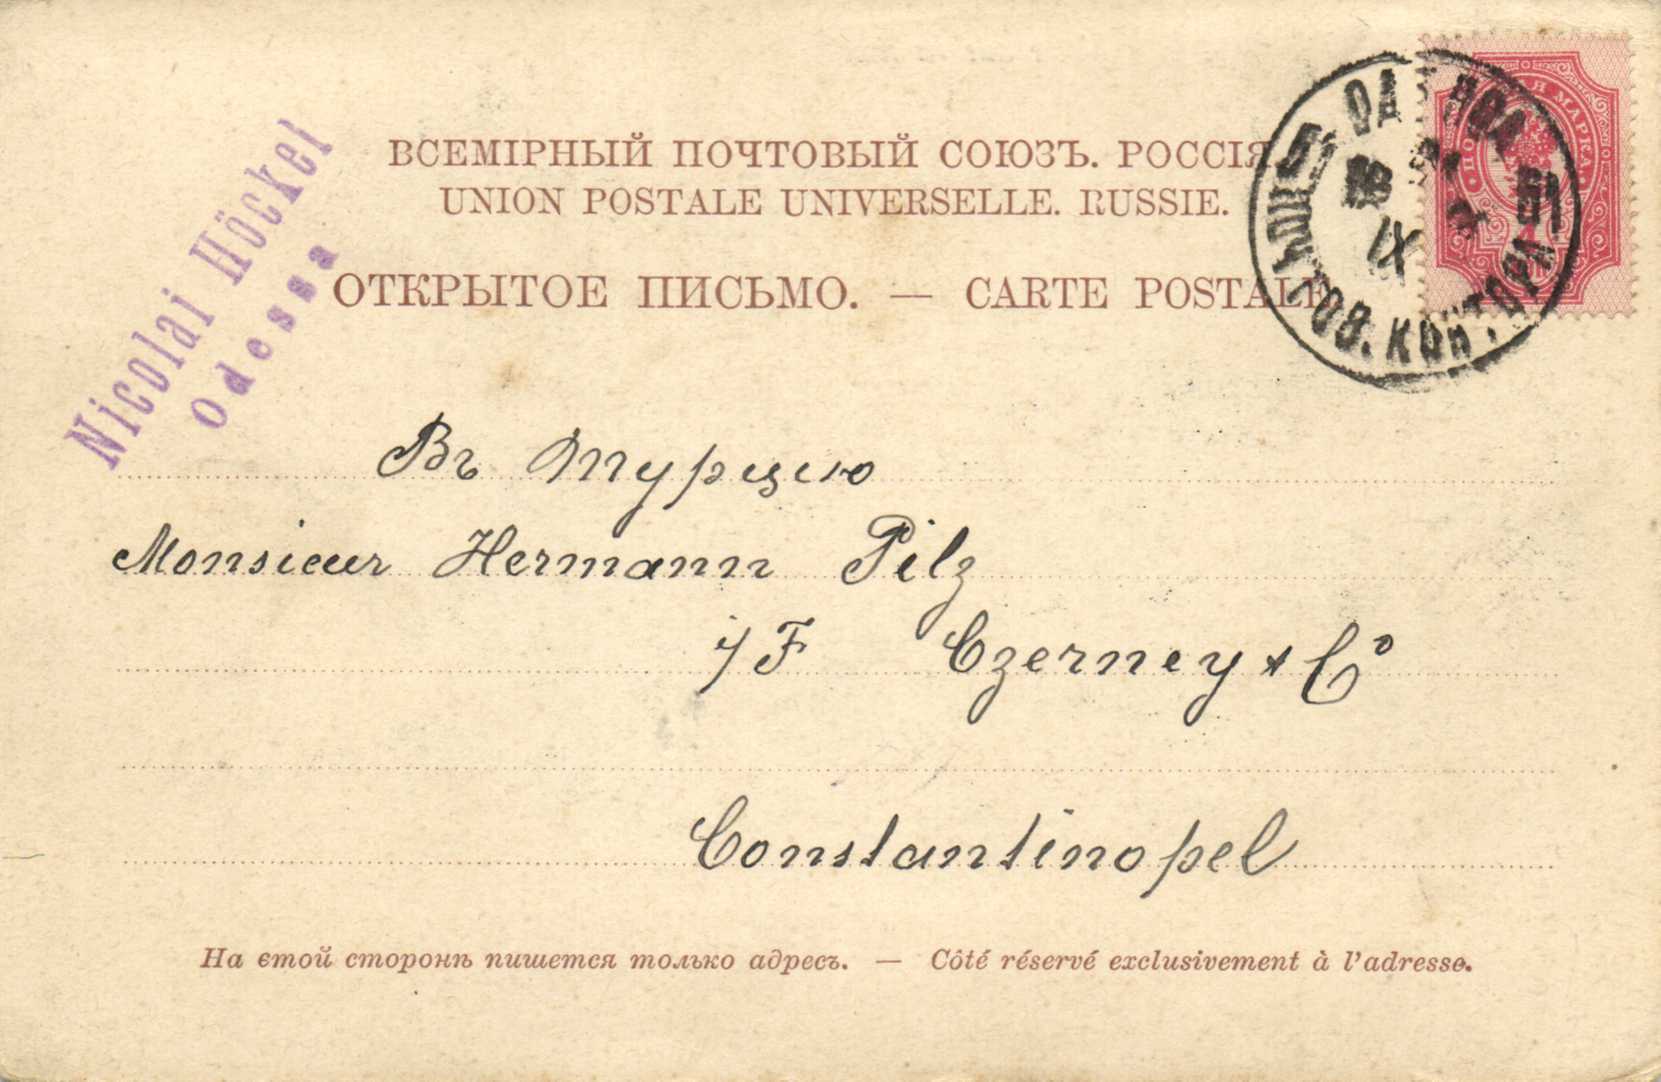 ВСЕМІРНЫЙ ПОЧТОВЫЙ СОЮЗЪ. РОССІЯ
UNION POSTALE UNIVERSELLE. RUSSIE.
ОТКРЫТОЕ ПИСЬМО. — CARTE POSTALE
Nicolai Höckel
Odessa
ОДЕССА
IX
ГОР. КОНТОРА
МАРКА
Въ Турцію
Monsieur Hermann Pilz
i/F Czerney & Co
Constantinopel
На етой сторонѣ пишется только адресъ. — Côté réservé exclusivement à l'adresse.